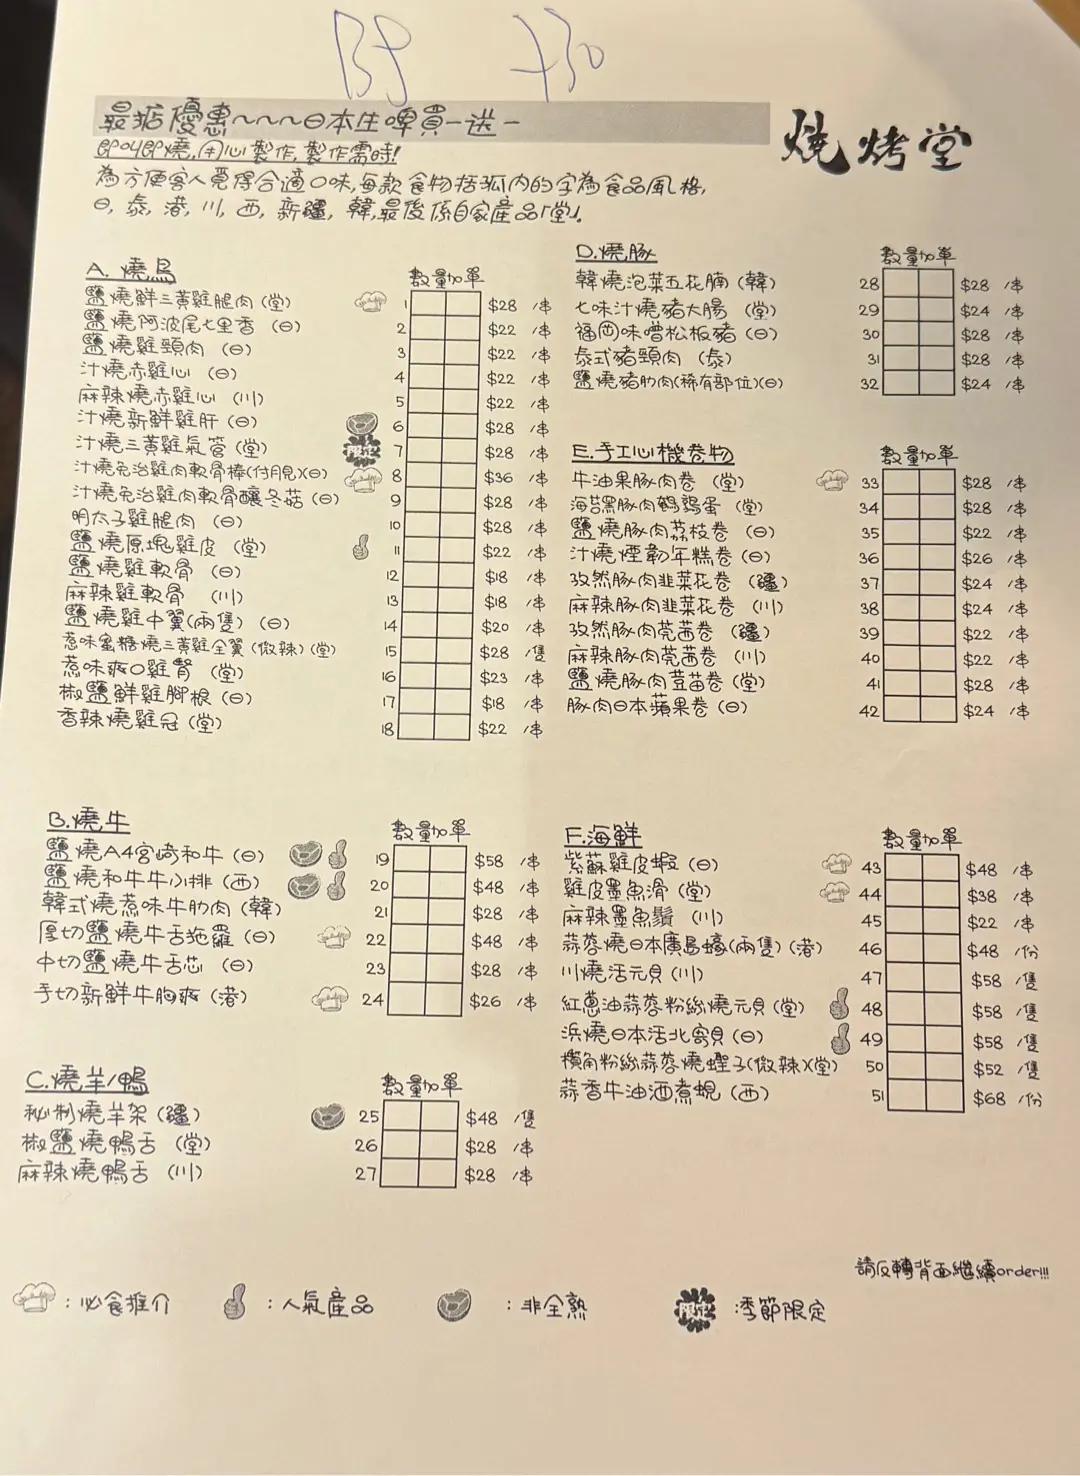 B9 730
最掂優惠~~~日本生啤買一送一
燒烤堂
即叫即燒,用心製作,製作需時!
為方便客人覓得合適口味,每款食物括弧內的字為食品風格,
日,泰,港,川,西,新疆,韓,最後係自家產品「堂」。
A. 燒鳥 數量加單
鹽燒鮮三黃雞腿肉(堂) 1 $28 /串
鹽燒阿波尾七里香(日) 2 $22 /串
鹽燒雞頸肉(日) 3 $22 /串
汁燒赤雞心(日) 4 $22 /串
麻辣燒赤雞心(川) 5 $22 /串
汁燒新鮮雞肝(日) 6 $28 /串
汁燒三黃雞氣管(堂) 限定 7 $28 /串
汁燒免治雞肉軟骨棒(付月見)(日) 8 $36 /串
汁燒免治雞肉軟骨釀冬菇(日) 9 $28 /串
明太子雞腿肉(日) 10 $28 /串
鹽燒原塊雞皮(堂) 11 $22 /串
鹽燒雞軟骨(日) 12 $18 /串
麻辣雞軟骨(川) 13 $18 /串
鹽燒雞中翼(兩隻)(日) 14 $20 /串
惹味蜜糖燒三黃雞全翼(微辣)(堂) 15 $28 /隻
惹味爽口雞腎(堂) 16 $23 /串
椒鹽鮮雞腳根(日) 17 $18 /串
香辣燒雞冠(堂) 18 $22 /串
B.燒牛 數量加單
鹽燒A4宮崎和牛(日) 19 $58 /串
鹽燒和牛牛小排(西) 20 $48 /串
韓式燒惹味牛肋肉(韓) 21 $28 /串
厚切鹽燒牛舌拖羅(日) 22 $48 /串
中切鹽燒牛舌芯(日) 23 $28 /串
手切新鮮牛胸爽(港) 24 $26 /串
C.燒羊/鴨 數量加單
秘制燒羊架(疆) 25 $48 /隻
椒鹽燒鴨舌(堂) 26 $28 /串
麻辣燒鴨舌(川) 27 $28 /串
D.燒豚 數量加單
韓燒泡菜五花腩(韓) 28 $28 /串
七味汁燒豬大腸(堂) 29 $24 /串
福岡味噌松板豬(日) 30 $28 /串
泰式豬頸肉(泰) 31 $28 /串
鹽燒豬肋肉(稀有部位)(日) 32 $24 /串
E.手工心機卷物 數量加單
牛油果豚肉卷(堂) 33 $28 /串
海苔黑豚肉鵪鶉蛋(堂) 34 $28 /串
鹽燒豚肉荔枝卷(日) 35 $22 /串
汁燒煙韌年糕卷(日) 36 $26 /串
孜然豚肉韭菜花卷(疆) 37 $24 /串
麻辣豚肉韭菜花卷(川) 38 $24 /串
孜然豚肉莞茜卷(疆) 39 $22 /串
麻辣豚肉莞茜卷(川) 40 $22 /串
鹽燒豚肉荳苗卷(堂) 41 $28 /串
豚肉日本蘋果卷(日) 42 $24 /串
F.海鮮 數量加單
紫蘇雞皮蝦(日) 43 $48 /串
雞皮墨魚滑(堂) 44 $38 /串
麻辣墨魚鬚(川) 45 $22 /串
蒜蓉燒日本廣島蠔(兩隻)(港) 46 $48 /份
川燒活元貝(川) 47 $58 /隻
紅蔥油蒜蓉粉絲燒元貝(堂) 48 $58 /隻
浜燒日本活北寄貝(日) 49 $58 /隻
欖角粉絲蒜蓉燒蟶子(微辣)(堂) 50 $52 /隻
蒜香牛油酒煮蜆(西) 51 $68 /份
請反轉背面繼續order!!!
:必食推介 :人氣產品 :非全熟 限定 :季節限定